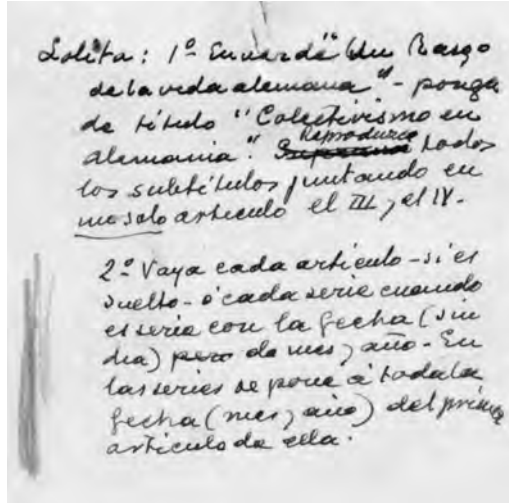 Lolita: 1º En vez de "Un Rasgo
de la vida alemana" - ponga
de título "Colectivismo en
Alemania". Reproduzca todos
los subtítulos juntando en
un solo artículo el III y el IV.
2º Vaya cada artículo - si es
suelto - o cada serie cuando
es serie con la fecha (sin
dia) pero de mes y año - En
las series se pone á toda la
fecha (mes y año) del primer
artículo de ella.